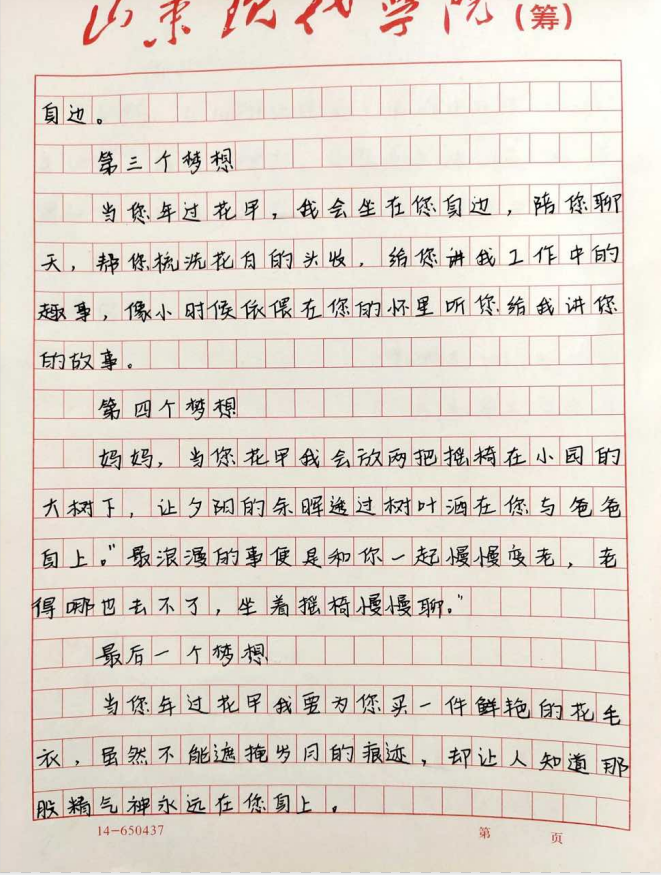 山东现代学院(筹)
身边。
第三个梦想
当您年过花甲，我会坐在您身边，陪您聊
天，帮您梳洗花白的头发，给您讲我工作中的
趣事，像小时候依偎在您的怀里听您给我讲您
的故事。
第四个梦想
妈妈，当您花甲我会放两把摇椅在小园的
大树下，让夕阳的余晖透过树叶洒在您与爸爸
身上。“最浪漫的事便是和你一起慢慢变老，老
得哪也去不了，坐着摇椅慢慢聊。”
最后一个梦想
当您年过花甲我要为您买一件鲜艳的花毛
衣，虽然不能遮掩岁月的痕迹，却让人知道那
股精气神永远在您身上。
14-650437
第 页